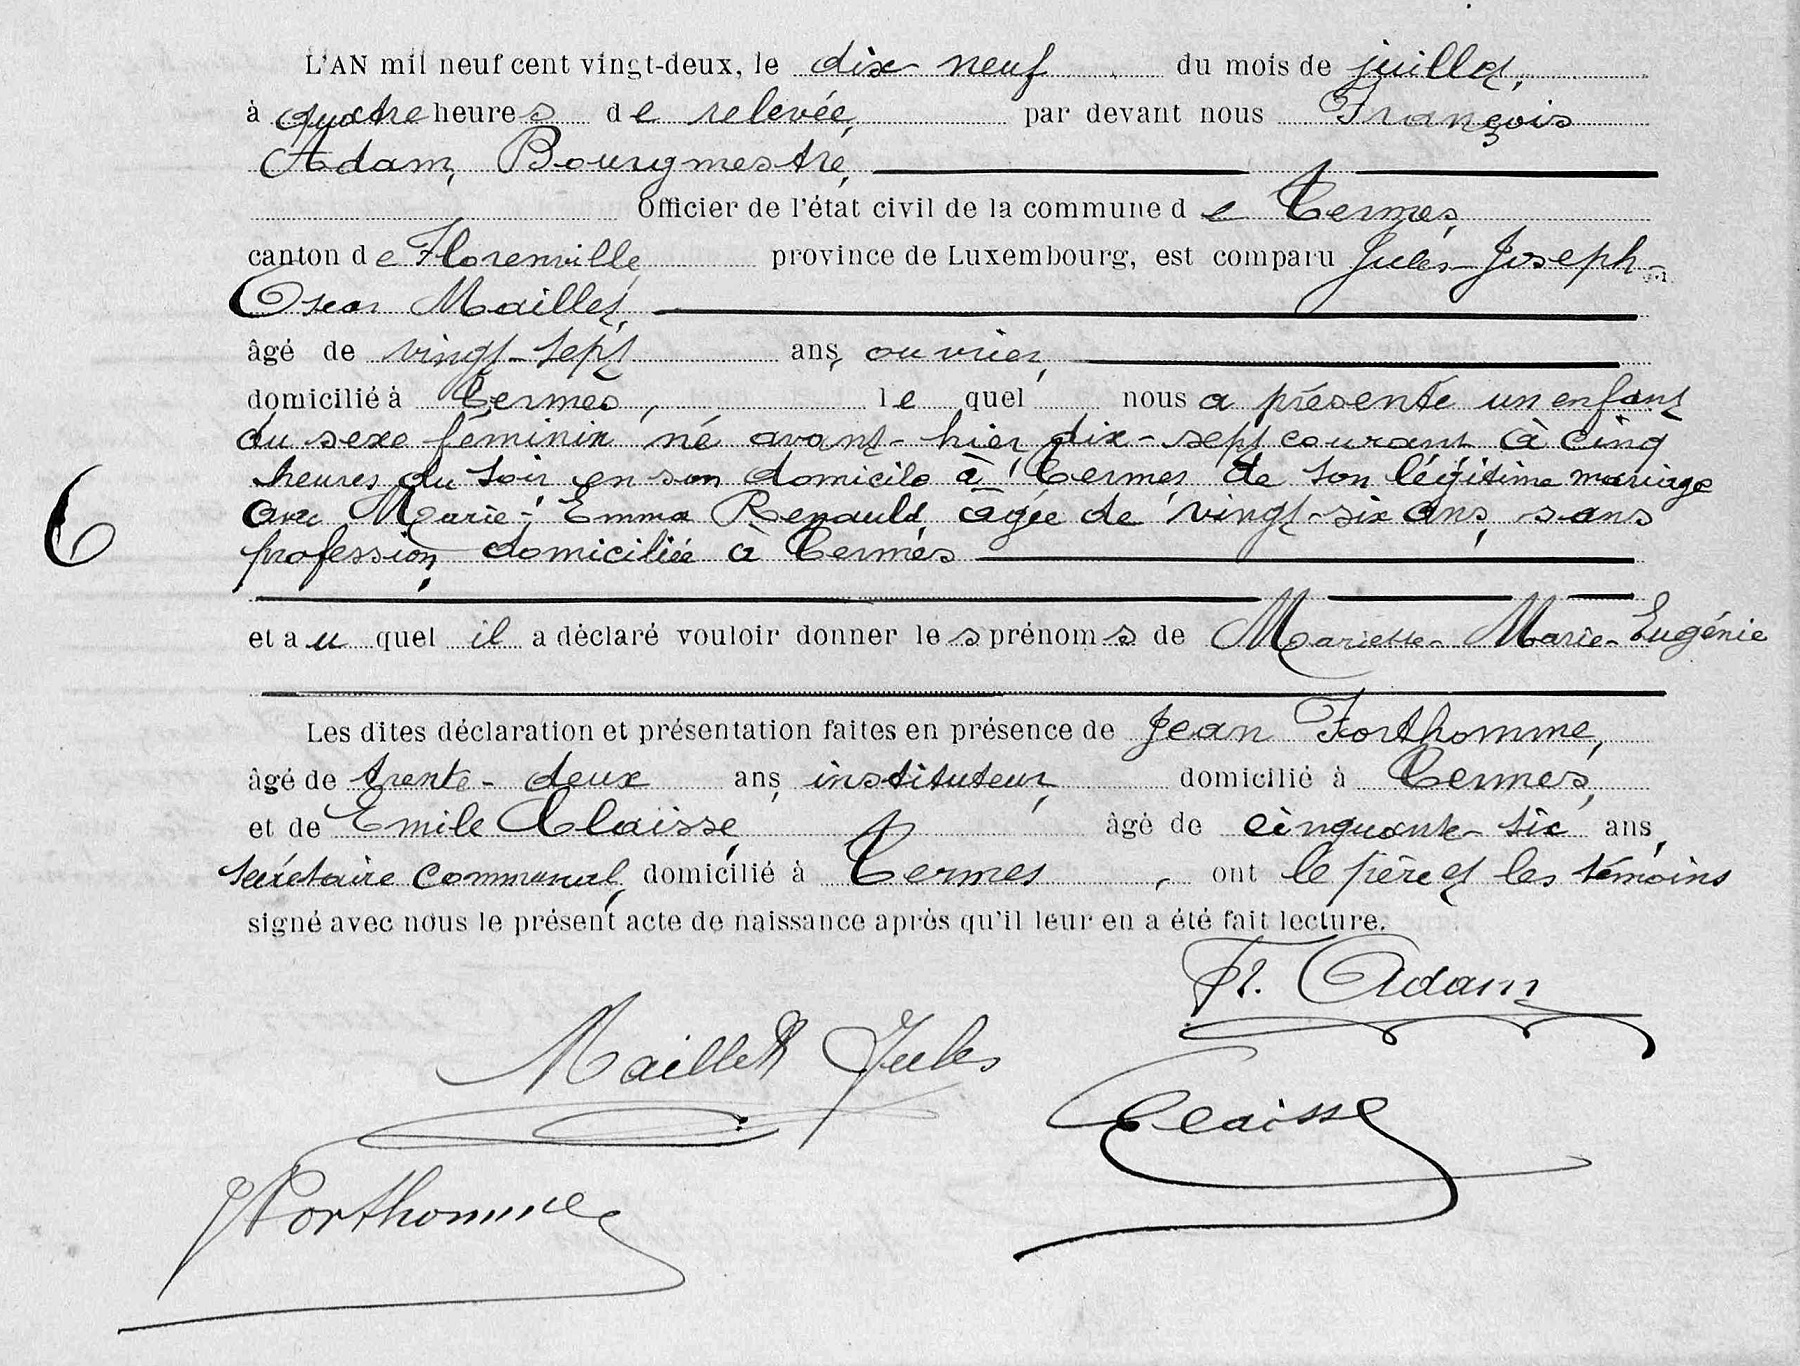 L'AN mil neuf cent vingt-deux, le dix neuf du mois de juillet,
à quatre heures de relevée, par devant nous François
Adam, Bourgmestre,
officier de l'état civil de la commune de Termes,
canton de Florenville province de Luxembourg, est comparu Jules-Joseph-
Oscar Maillet,
âgé de vingt-sept ans, ouvrier,
domicilié à Termes, le quel nous a présenté un enfant
du sexe féminin né avant-hier, dix-sept courant à cinq
heures du soir en son domicile à Termes de son légitime mariage
avec Marie-Emma Renauld, âgée de vingt-six ans, sans
profession, domiciliée à Termes
6
et au quel il a déclaré vouloir donner les prénoms de Mariette-Marie-Eugénie
Les dites déclaration et présentation faites en présence de Jean Forthomme,
âgé de trente-deux ans, instituteur, domicilié à Termes,
et de Emile Claisse, âgé de cinquante-six ans,
secrétaire communal, domicilié à Termes, ont le père et les témoins
signé avec nous le présent acte de naissance après qu'il leur en a été fait lecture.
Fr. Adam
Maillet Jules
Claisse
JForthomme